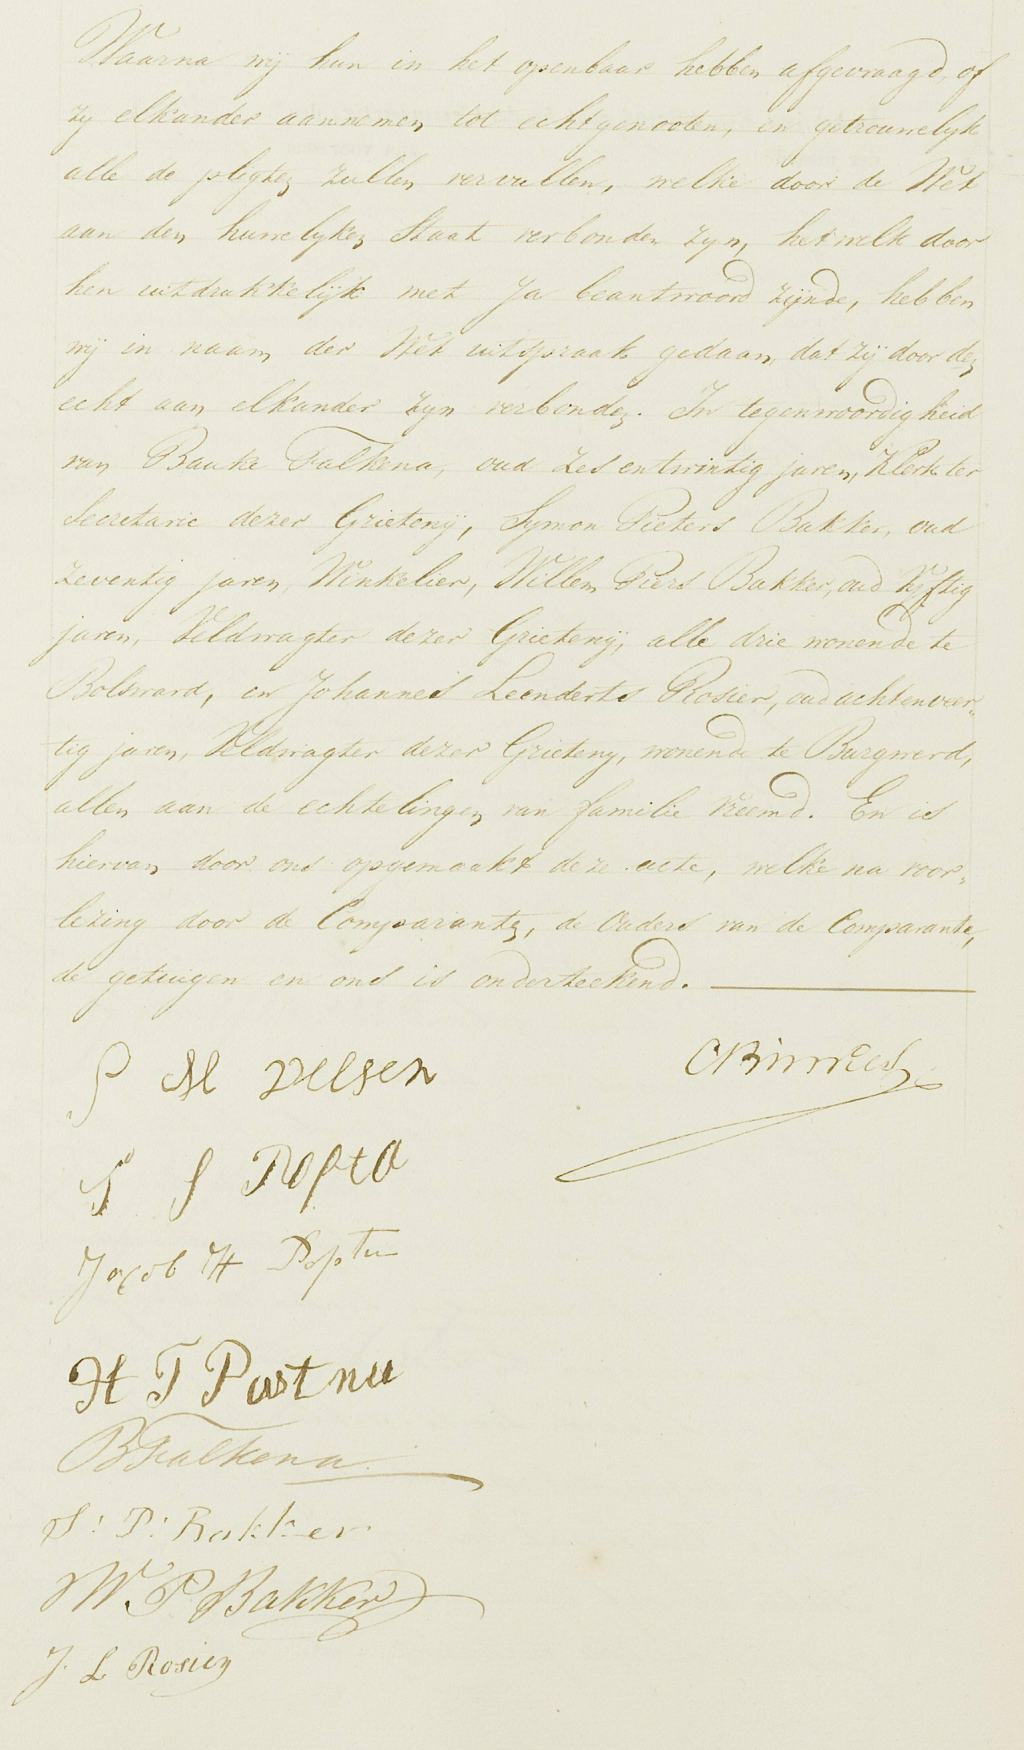 Waarna wij hun in het openbaar hebben afgevraagd, of
zy elkander aannemen tot echtgenooten, en getrouwelyk
alle de pligten zullen vervullen, welke door de Wet
aan den huwelyken Staat verbonden zyn, hetwelk door
hen uitdrukkelijk met Ja beantwoord zijnde, hebben
wij in naam der Wet uitspraak gedaan, dat zij door den
echt aan elkander zyn verbonden. In tegenwoordigheid
van Bauke Falkena, oud zesentwintig jaren, Klerk ter
Secretarie dezer Grieteny, Symon Pieters Bakker, oud
zeventig jaren, Winkelier, Willem Piers Bakker, oud Vyftig
jaren, Veldwagter dezer Grieteny, alle drie wonende te
Bolsward, en Johannes Leenderts Rosier, oud achtenveer-
tig jaren, Veldwagter dezer Grieteny, wonende te Burgwerd,
allen aan de echtelingen van familie vreemd. En is
hiervan door ons opgemaakt deze acte, welke na voor-
lezing door de Comparanten, de Ouders van de Comparante,
de getuigen en ons is onderteekend.
S M Velsen
CBinnes
T S Popta
Jacob H Popta
H T Postma
BFalkena
S: P: Bakker
W. P Bakker
J. L Rosier